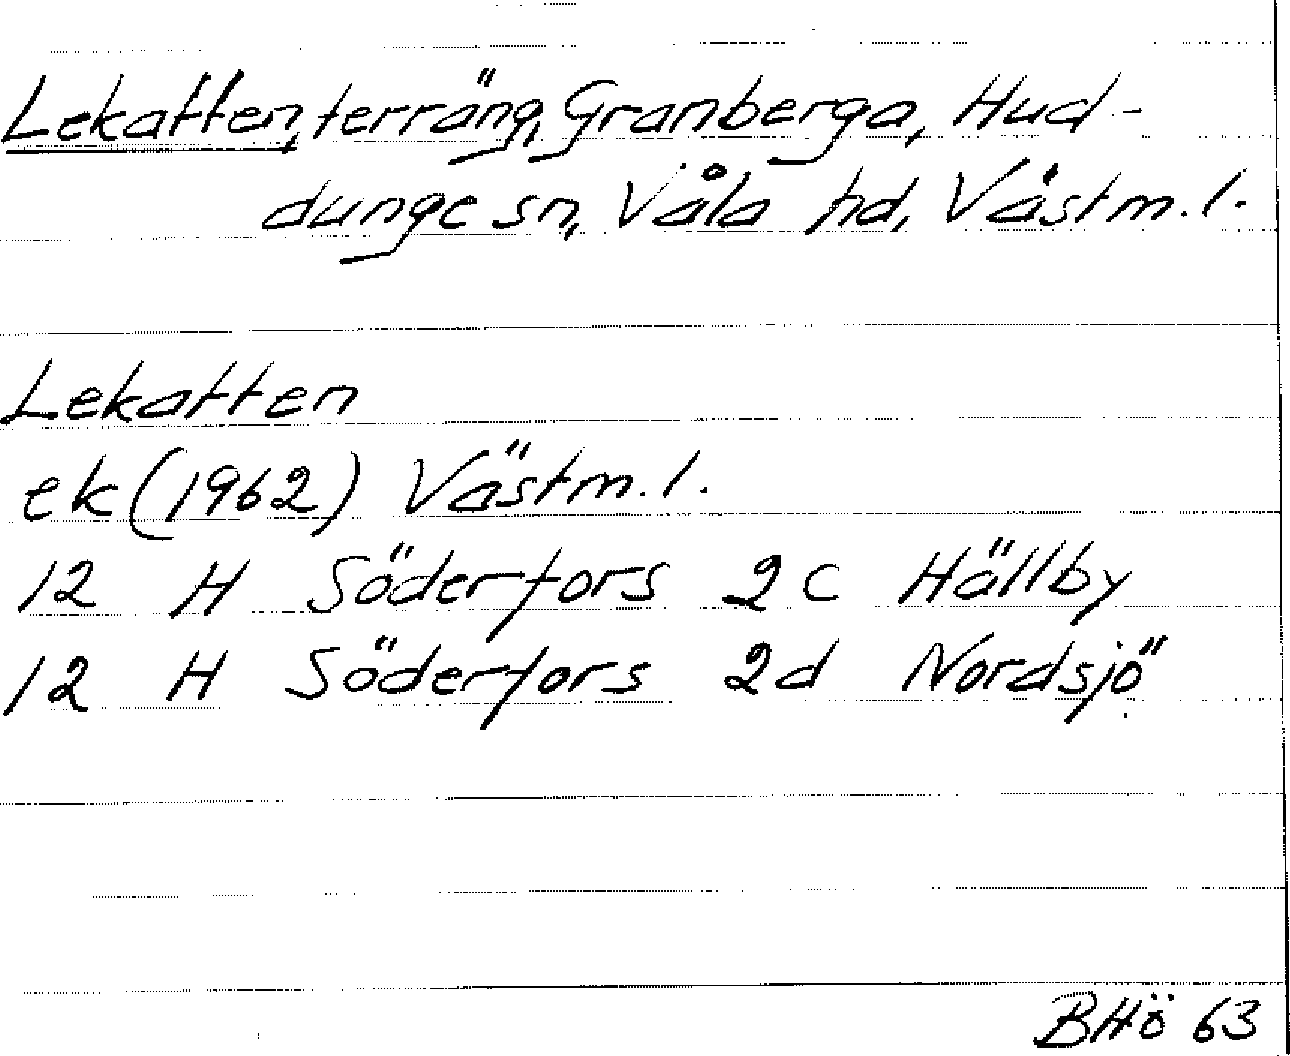 Lekatten, terräng, Granberga, Hud-
dunge sn, Våla hd, Västm. l.
Lekatten
ek (1962) Västm. l.
12 H Söderfors 2 c Hällby
12 H Söderfors 2d Nordsjö
BHö 63